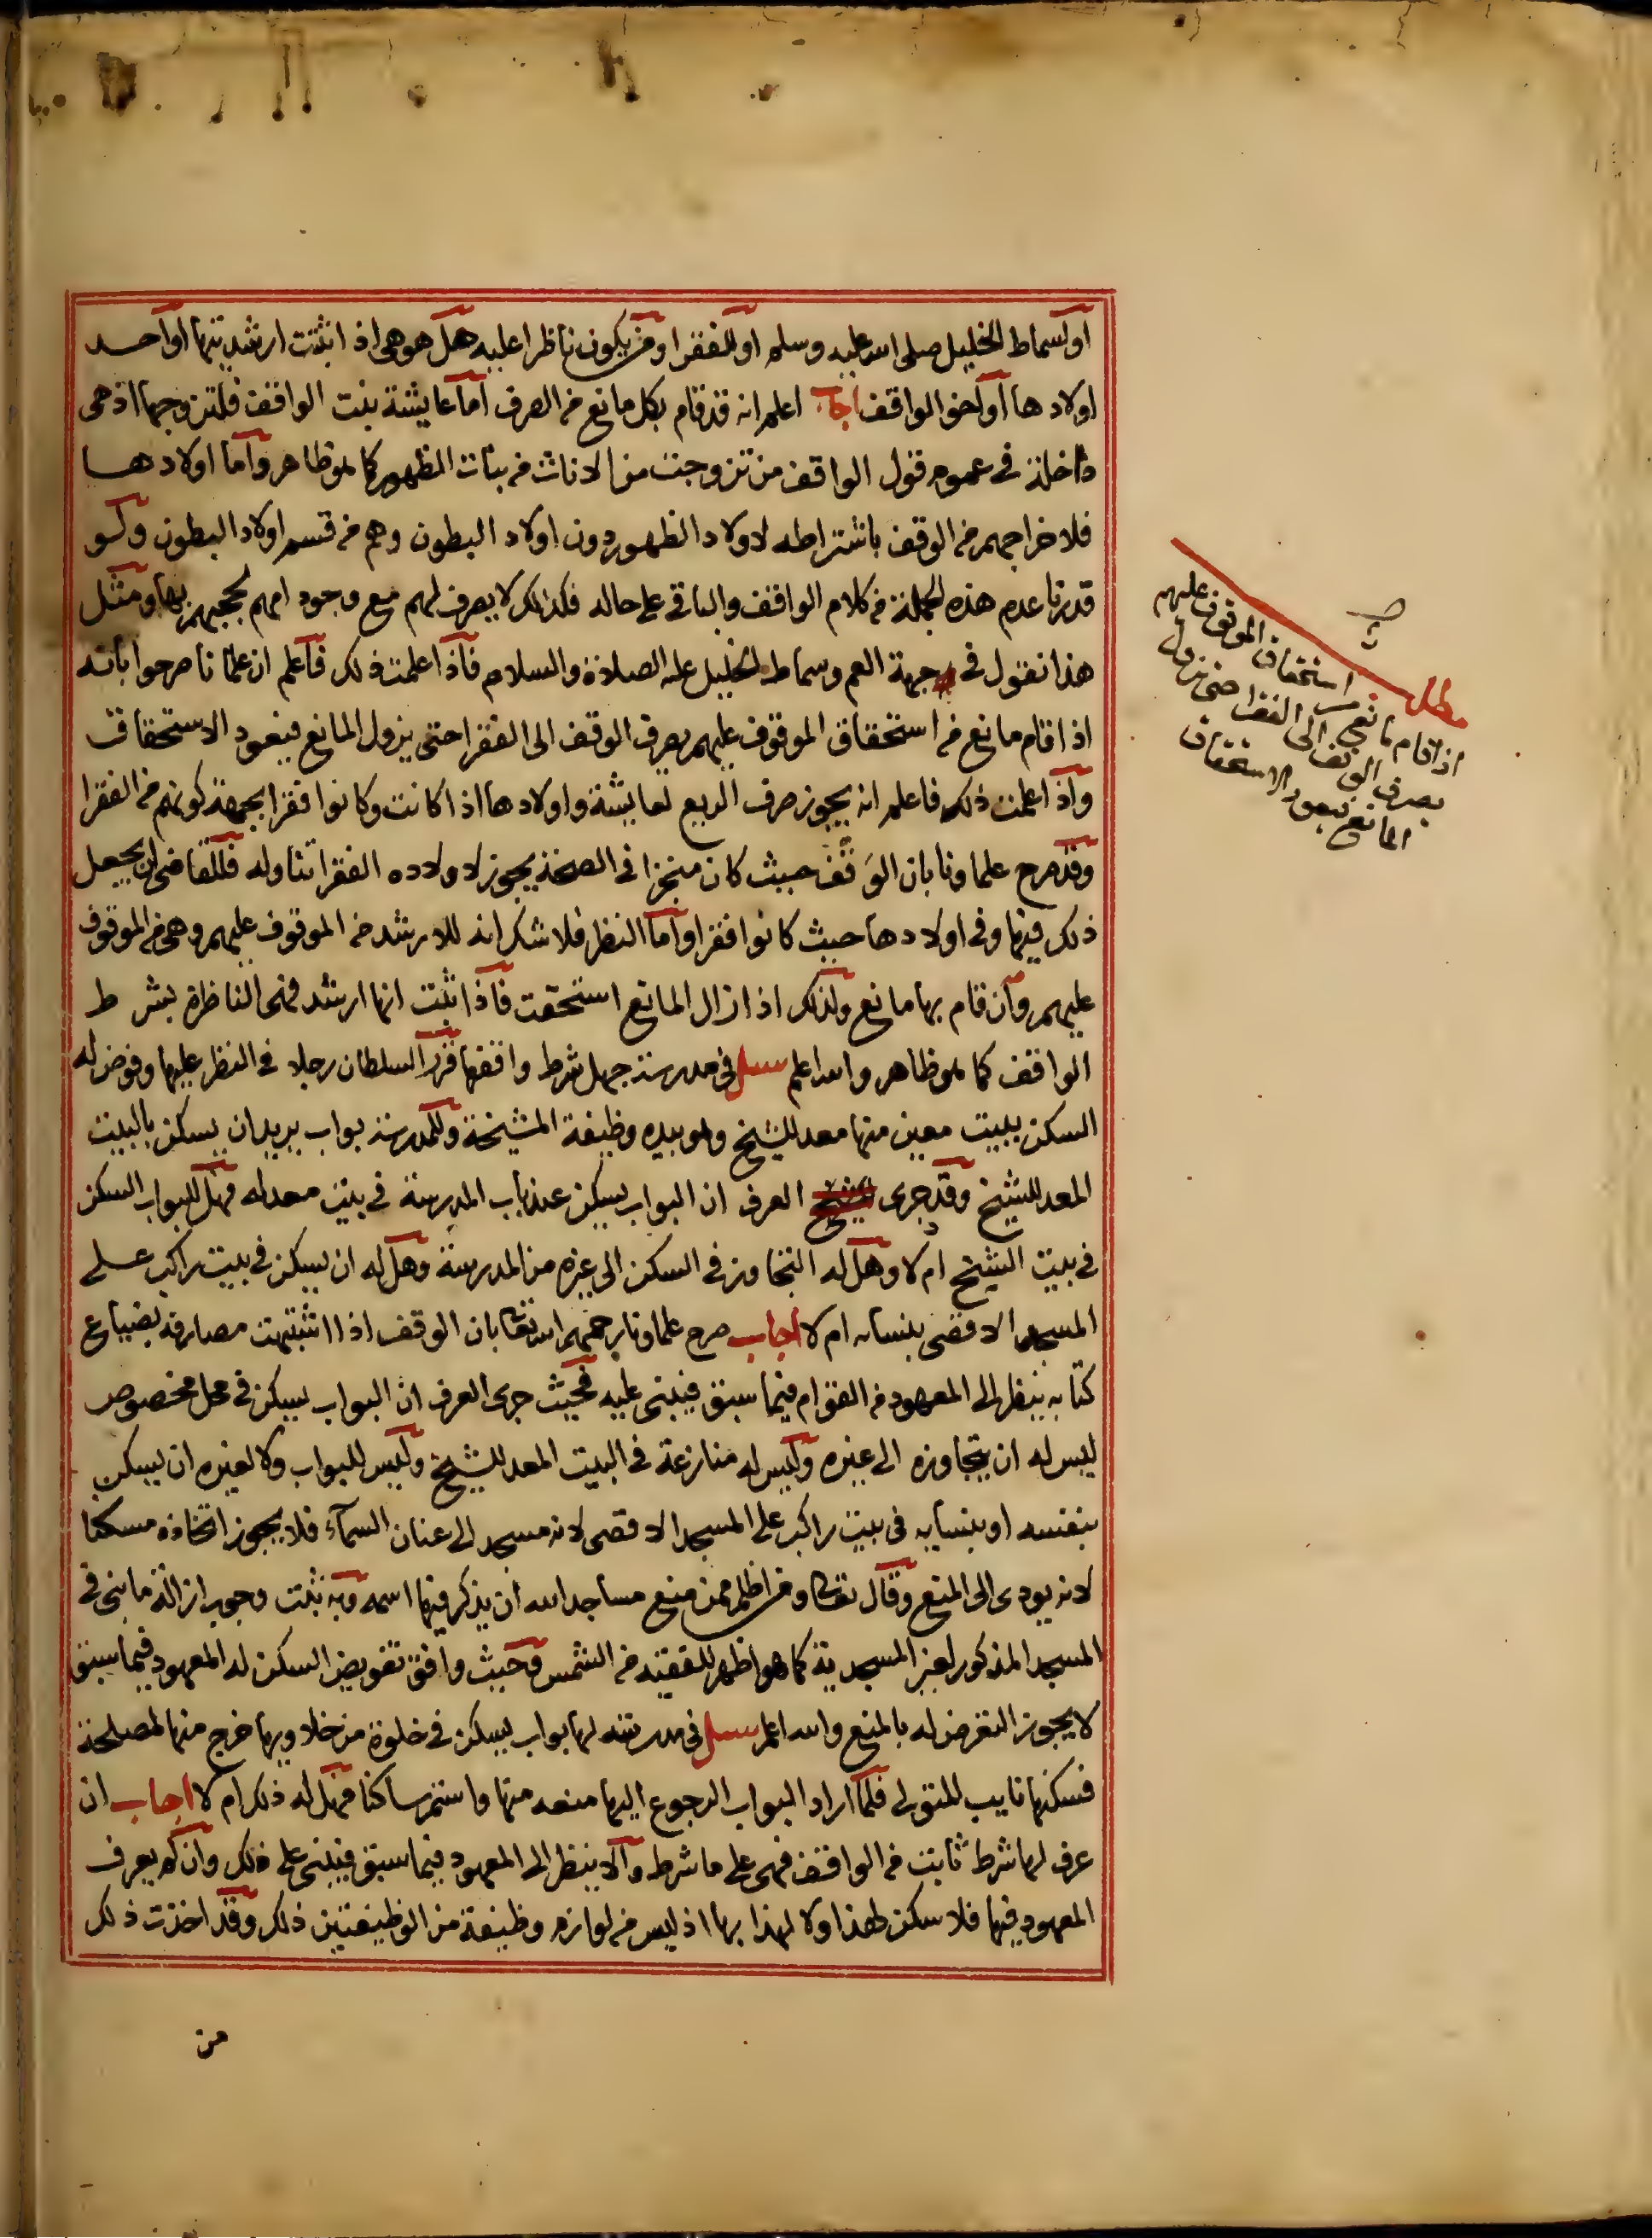 او لسماط الخليل صلى الله عليه وسلم او للفقرا ومن يكون ناظرا عليه هل هو هى اذا ثبتت ارشديتها او احد
اولادها او لاخو الواقف اجاب اعلم انه قد قام بكل مانع من الصرف اما عايشة بنت الواقف فلتزوجها اذ هى
داخلة فى عموم قول الواقف من تزوجت من الاناث من بنات الظهور كما هو ظاهر واما اولادها
فلاخراجهم من الوقف باشتراطه لاولاد الظهور دون اولاد البطون وهم من قسم اولاد البطون ولو
قدرنا عدم هذه الجملة من كلام الواقف والباقى على حاله فكذلك لا يصرف لهم مع وجود امهم لحجبهم بها ومثل
هذا نقول فى جهة العم وسماط الخليل عليه الصلاة والسلام فاذا علمت ذلك فاعلم ان علمانا صرحوا بانه
اذا قام مانع من استحقاق الموقوف عليهم يصرف الوقف الى الفقرا حتى يزول المانع فيعود الاستحقاق
واذا علمت ذلك فاعلم انه يجوز صرف الريع لعايشة واولادها اذا كانت وكانوا فقرا بجهة كونهم من الفقرا
وقد صرح علماونا بان الوقف حيث كان منجزا فى الصحة يجوز لاولاده الفقرا تناوله فللقاضى ان يجعل
ذلك فيها وفى اولادها حيث كانوا فقرا واما النظر فلا شك انه للارشد من الموقوف عليهم وهى من الموقوف
عليهم وان قام بها مانع ولذلك اذا زال المانع استحقت فاذا ثبت انها ارشد فهى الناظرة بشرط
الواقف كما هو ظاهر والله اعلم سئل فى مدرسة جهل شرط واقفها قرر السلطان رجلا فى النظر عليها وفوض له
السكن ببيت معين منها معد للشيخ وهو بيده وظيفة المشيخة وللمدرسة بواب يريد ان يسكن بالبيت
المعد للشيخ وقد جرى العرف ان البواب يسكن عند باب المدرسة فى بيت معد له فهل للبواب السكن
فى بيت الشيخ ام لا وهل له التجاوز فى السكن الى غيره من المدرسة وهل له ان يسكن فى بيت راكب على
المسجد الاقصى بنسائه ام لا اجاب صرح علماونا رحمهم الله تعالى بان الوقف اذا اشتبهت مصارفه بضياع
كتابه ينظر الى المعهود من القوام فيما سبق فيبنى عليه فحيث جرى العرف ان البواب يسكن فى محل مخصوص
ليس له ان يتجاوزه الى غيره وليس له منازعة فى البيت المعد للشيخ وليس للبواب ولا لغيره ان يسكن
بنفسه او بنسايه فى بيت راكب على المسجد الاقصى لانه مسجد الى عنان السماء فلا يجوز اتخاذه مسكنا
لانه يودى الى المنع وقال تعالى ومن اظلم ممن منع مساجد الله ان يذكر فيها اسمه وبه ثبت وجوب ازالة ما بنى فى
المسجد المذكور لغير المسجدية كما هو اظهر للفقيه من الشمس وحيث وافق تفويض السكن له المعهود فيما سبق
لا يجوز التعرض له بالمنع والله اعلم سئل فى مدرسة لها بواب يسكن فى خلوة من خلاويها خرج منها لمصلحة
فسكنها نايب المتولى فلما اراد البواب الرجوع اليها منعه منها واستمر ساكنا فهل له ذلك ام لا اجاب ان
عرف لها شرط ثابت من الواقف فهى على ما شرط والا ينظر الى المعهود فيما سبق فيبنى على ذلك وان لم يعرف
المعهود فيها فلا سكن لهذا ولا لهذا بها اذ ليس من لوازم وظيفة من الوظيفتين ذلك وقد اخذت ذلك
من
مطلب
اذا قام مانع من استحقاق الموقوف عليهم
يصرف الوقف الى الفقرا حتى يزول
المانع فيعود الاستحقاق